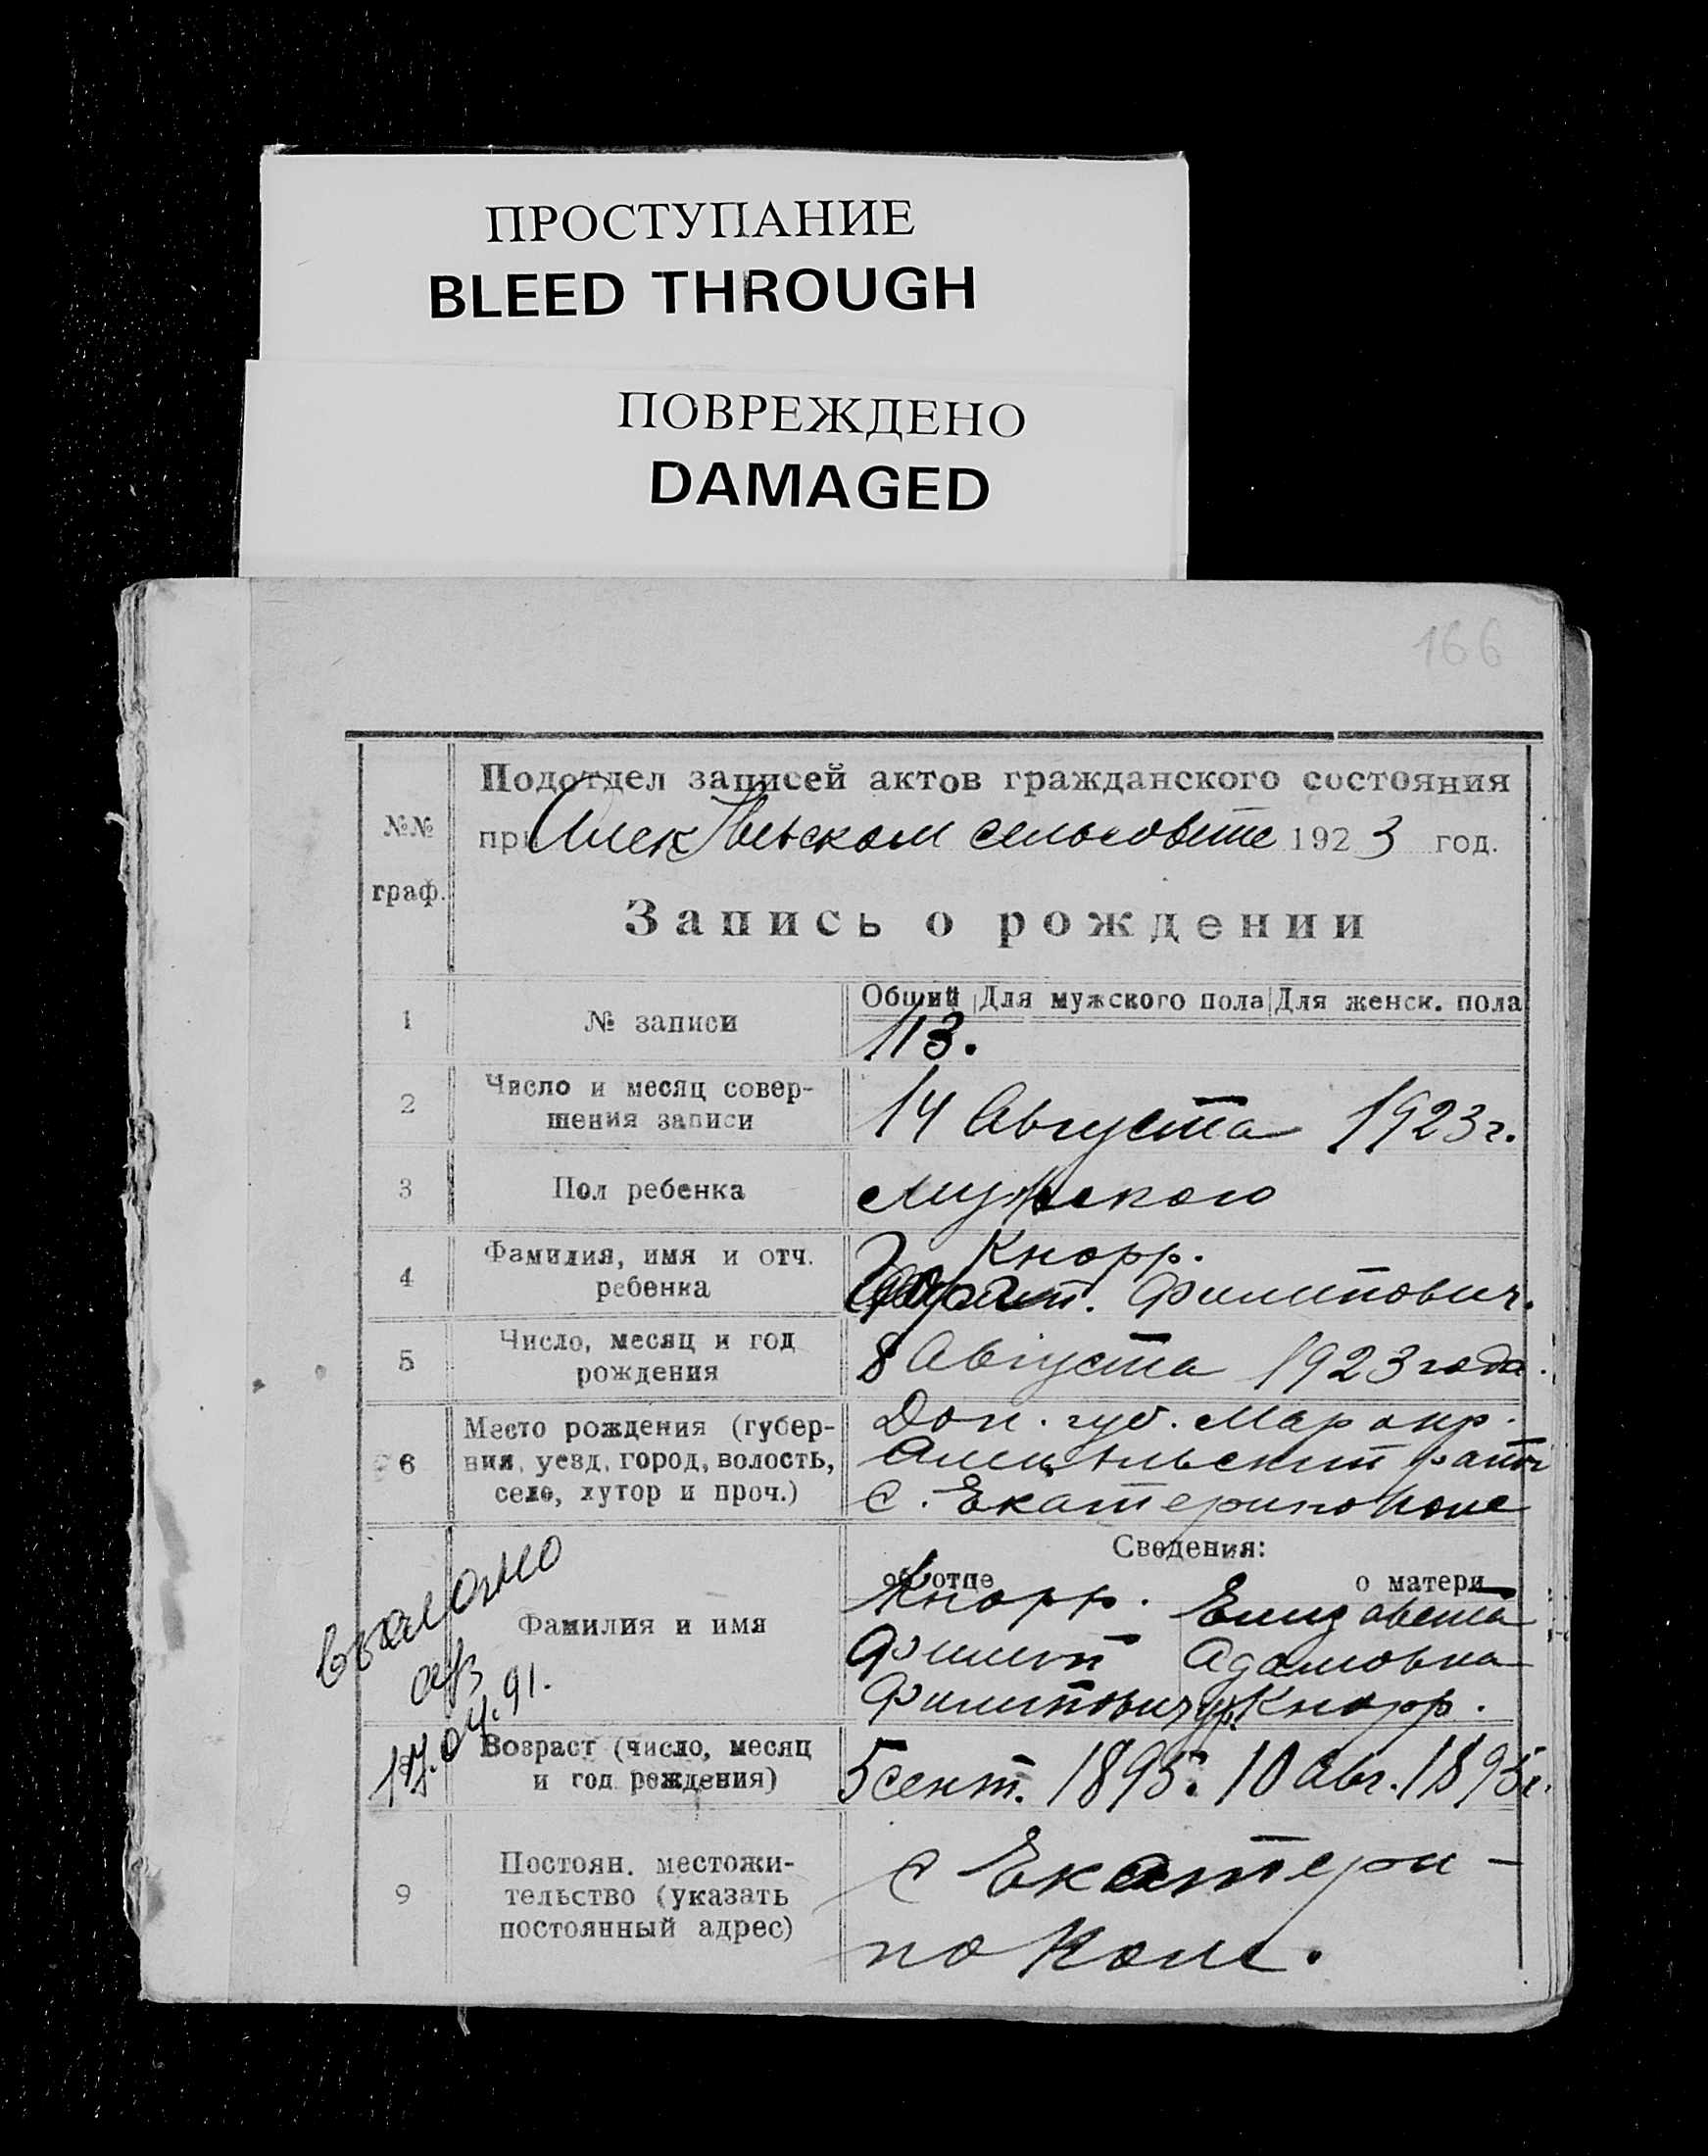 ПРОСТУПАНИЕ
BLEED THROUGH
ПОВРЕЖДЕНО
DAMAGED
166
Подотдел записей актов гражданского состояния
№№
при сельсовете 1923 год.
граф.
Запись о рождении
Общий Для мужского пола Для женск. пола
1 № записи 113.
2 Число и месяц совер-
шения записи 14 Августа 1923 г.
3 Пол ребенка Мужского
4 Фамилия, имя и отч.
ребенка Кнорр.
Филипович.
5 Число, месяц и год
рождения 8 Августа 1923 года.
6 Место рождения (губер-
ния, уезд, город, волость,
село, хутор и проч.)
Дон. губ. Мар окр.
район
с.
Сведения:
об отце о матери
Фамилия и имя
Кнорр. Елизавета
Филипп Адамовна
Филипович Кнорр.
17.04.91.
Возраст (число, месяц
и год рождения) 5 сент. 1895. 10 Авг. 1895 г.
9 Постоян. местожи-
тельство (указать
постоянный адрес)
с Екатери-